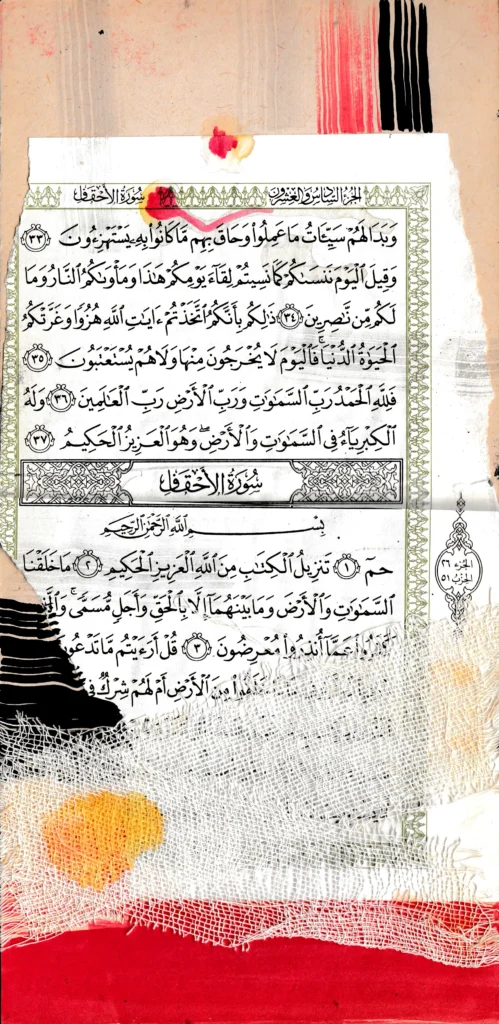 سُورَةُ الأَحْقَافِ الجُزْءُ السَّادِسُ وَالعِشْرُونَ
وَبَدَا لَهُمْ سَيِّـَٔاتُ مَا عَمِلُوا۟ وَحَاقَ بِهِم مَّا كَانُوا۟ بِهِۦ يَسْتَهْزِءُونَ ٣٣
وَقِيلَ ٱلْيَوْمَ نَنسَىٰكُمْ كَمَا نَسِيتُمْ لِقَآءَ يَوْمِكُمْ هَـٰذَا وَمَأْوَىٰكُمُ ٱلنَّارُ وَمَا
لَكُم مِّن نَّـٰصِرِينَ ٣٤ ذَٰلِكُم بِأَنَّكُمُ ٱتَّخَذْتُمْ ءَايَـٰتِ ٱللَّهِ هُزُوًا وَغَرَّتْكُمُ
ٱلْحَيَوٰةُ ٱلدُّنْيَا ۚ فَٱلْيَوْمَ لَا يُخْرَجُونَ مِنْهَا وَلَا هُمْ يُسْتَعْتَبُونَ ٣٥
فَلِلَّهِ ٱلْحَمْدُ رَبِّ ٱلسَّمَـٰوَٰتِ وَرَبِّ ٱلْأَرْضِ رَبِّ ٱلْعَـٰلَمِينَ ٣٦ وَلَهُ
ٱلْكِبْرِيَآءُ فِى ٱلسَّمَـٰوَٰتِ وَٱلْأَرْضِ ۖ وَهُوَ ٱلْعَزِيزُ ٱلْحَكِيمُ ٣٧
سُورَةُ الأَحْقَافِ
بِسْمِ ٱللَّهِ ٱلرَّحْمَـٰنِ ٱلرَّحِيمِ
حمٓ ١ تَنزِيلُ ٱلْكِتَـٰبِ مِنَ ٱللَّهِ ٱلْعَزِيزِ ٱلْحَكِيمِ ٢ مَا خَلَقْنَا
ٱلسَّمَـٰوَٰتِ وَٱلْأَرْضَ وَمَا بَيْنَهُمَآ إِلَّا بِٱلْحَقِّ وَأَجَلٍ مُّسَمًّى ۚ
كَفَرُوا۟ عَمَّآ أُنذِرُوا۟ مُعْرِضُونَ ٣ قُلْ أَرَءَيْتُم مَّا تَدْعُونَ
خَلَقُوا۟ مِنَ ٱلْأَرْضِ أَمْ لَهُمْ شِرْكٌ فِى
الجزء ٢٦
الحزب ٥١